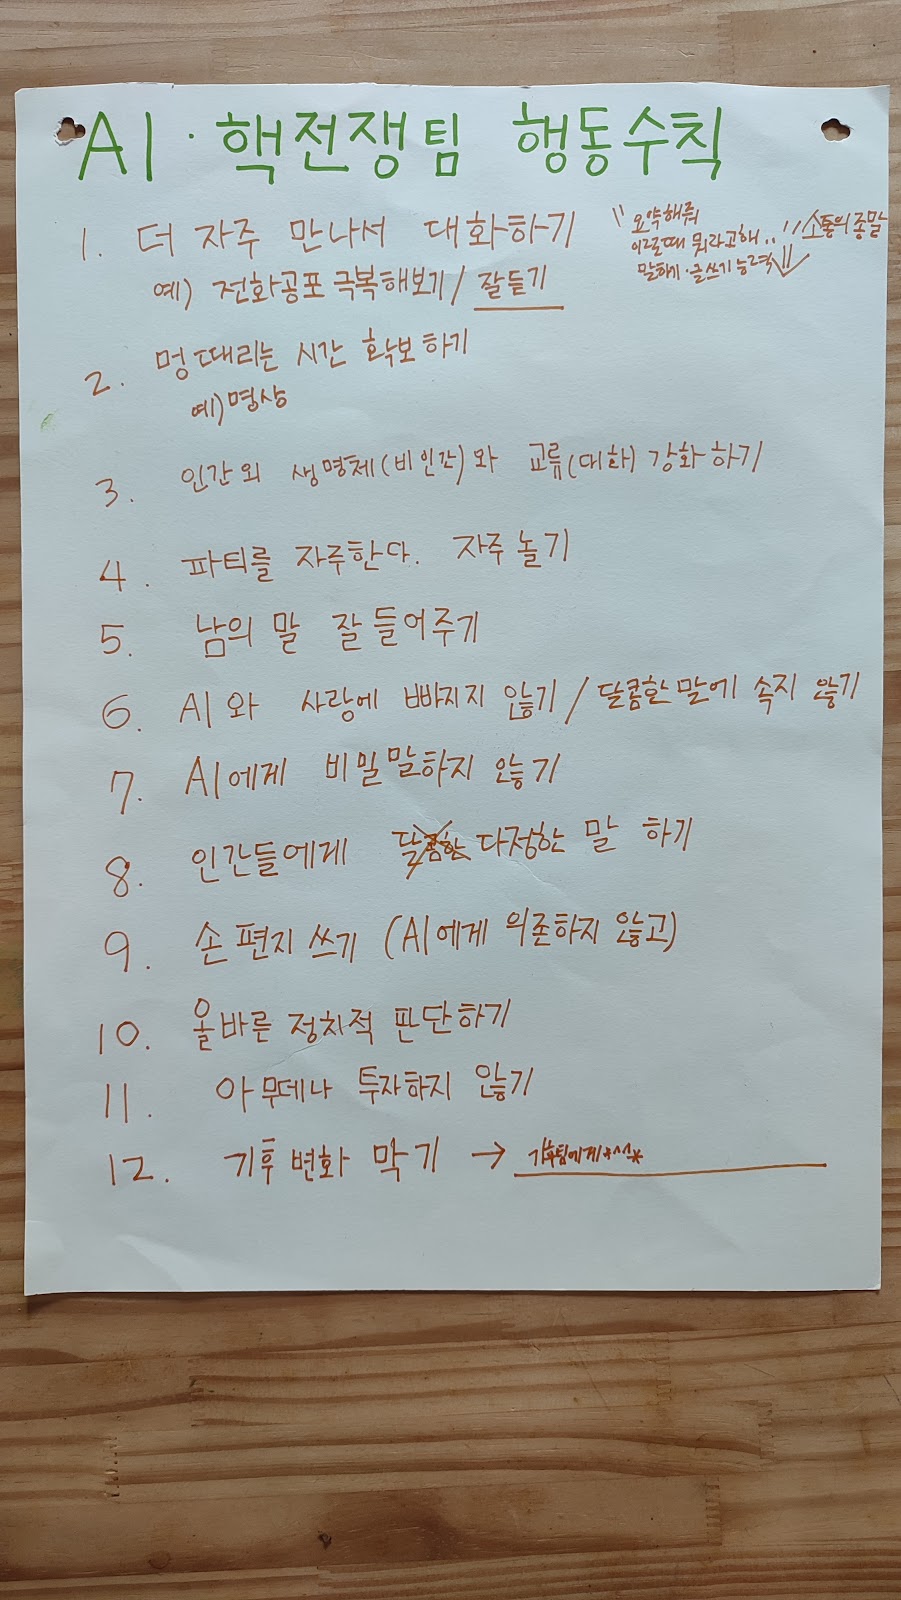 AI · 핵전쟁팀 행동수칙
1. 더 자주 만나서 대화하기
"요약해줘
이럴때 뭐라고해.." 소통의 종말
말하기·글쓰기 능력↓
예) 전화공포 극복해보기 / 잘듣기
2. 멍때리는 시간 확보하기
예) 명상
3. 인간외 생명체(비인간)와 교류(대화) 강화하기
4. 파티를 자주한다. 자주 놀기
5. 남의 말 잘 들어주기
6. AI와 사랑에 빠지지 않기 / 달콤한 말에 속지 않기
7. AI에게 비밀말하지 않기
8. 인간들에게 달콤한 다정한 말 하기
9. 손편지 쓰기 (AI에게 의존하지 않고)
10. 올바른 정치적 판단하기
11. 아무데나 투자하지 않기
12. 기후변화 막기 → 기후팀에게*^^*